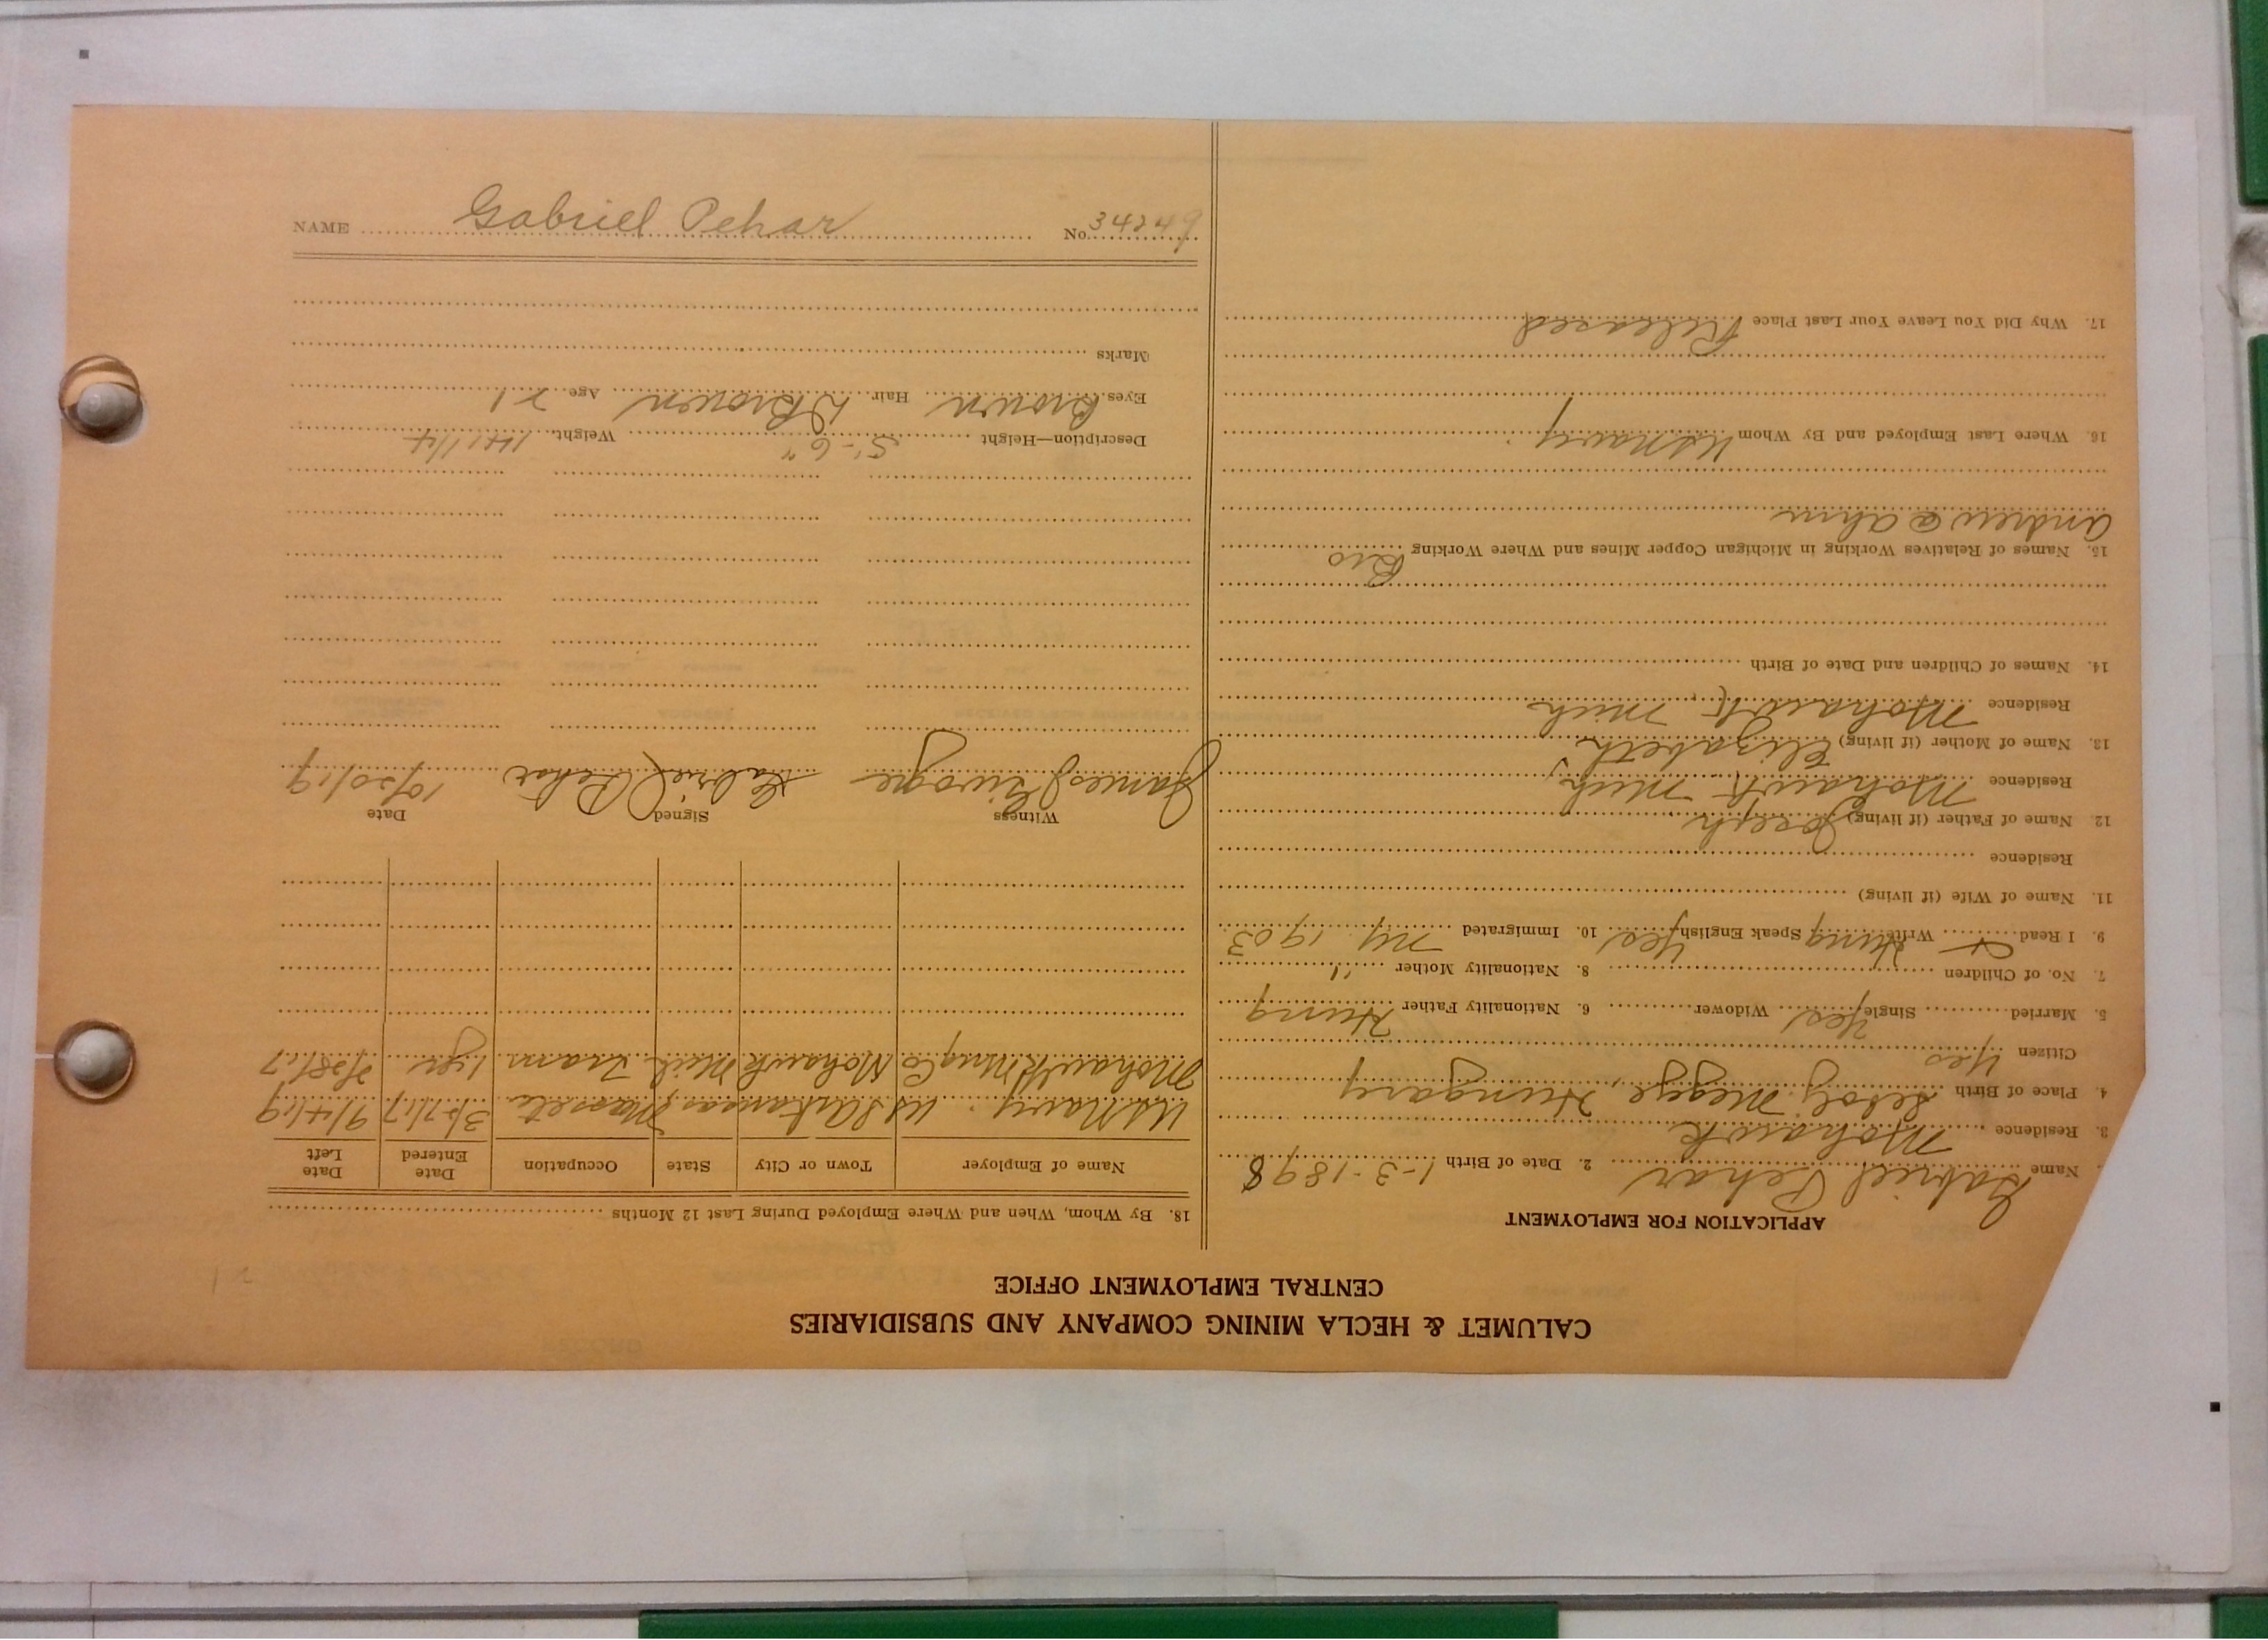 CALUMET & HECLA MINING COMPANY AND SUBSIDIARIES
CENTRAL EMPLOYMENT OFFICE
APPLICATION FOR EMPLOYMENT
Name Gabriel Pehar 2. Date of Birth 1-3-1898
3. Residence Mohawk
4. Place of Birth Megye, Hungary
Citizen Yes
5. Married Single Yes Widower 6. Nationality Father Hung
7. No. of Children 8. Nationality Mother "
9. I Read Write Hung Speak English Yes 10. Immigrated NY. 1903
11. Name of Wife (if living)
Residence
12. Name of Father (if living) Joseph
Residence Mohawk Mich
13. Name of Mother (if living) Elizabeth
Residence Mohawk, Mich
14. Names of Children and Date of Birth
15. Names of Relatives Working in Michigan Copper Mines and Where Working Bro
Andrew @ Ahm
16. Where Last Employed and By Whom US Navy.
17. Why Did You Leave Your Last Place Released
18. By Whom, When and Where Employed During Last 12 Months
Name of Employer Town or City State Occupation Date Entered Date Left
US Navy. US S Arkansas 3/27/17 9/4/19
Mohawk Mng Co Mohawk Mich Tram 1 yr
Witness Signed Date
James Gabriel Pehar 10/20/19
Description—Height 5'-6" Weight 141 1/4
Eyes Brown Hair D Brown Age 21
Marks
NAME Gabriel Pehar No. 34249